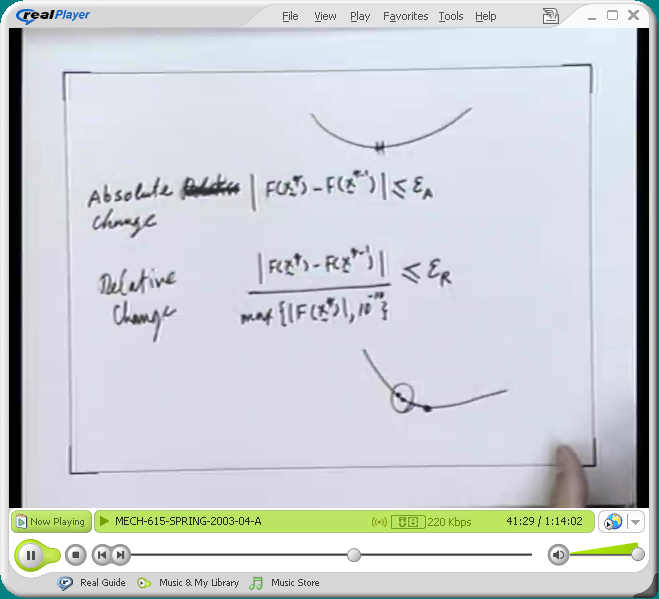 realPlayer
File View Play Favorites Tools Help
Absolute | F(x^q) - F(x^q-1) | ≤ ε_A
Change
Relative | F(x^q) - F(x^q-1) | ≤ ε_R
Change max {|F(x^q)|, 10^-10}
Now Playing MECH-615-SPRING-2003-04-A 220 Kbps 41:29 / 1:14:02
Real Guide Music & My Library Music Store